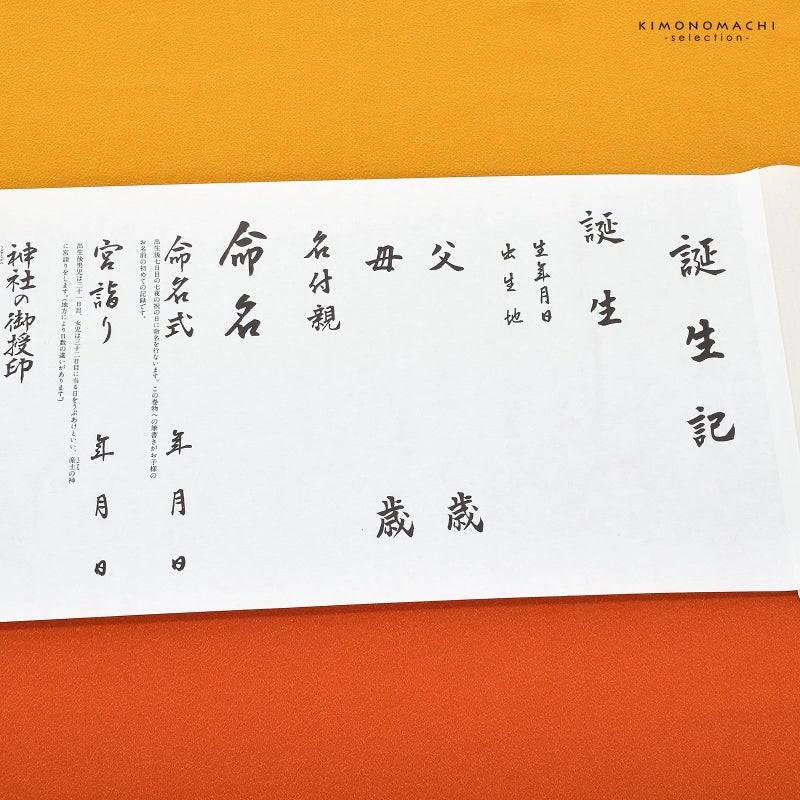 KIMONOMACHI
-selection-
誕生記
誕生
生年月日
出生地
父 歳
母 歳
名付親
命名
命名式 年 月 日
出生後七日目の七夜の祝の日に命名を行ないます。この巻物への筆書きがお子様の
お名前の初めての記録です。
宮詣り 年 月 日
出生後男児は三十一日目、女児は三十二日目に当る日をうぶあけといい、産土の神
に宮詣りをします。(地方により日数の違いがあります。)
神社の御授印